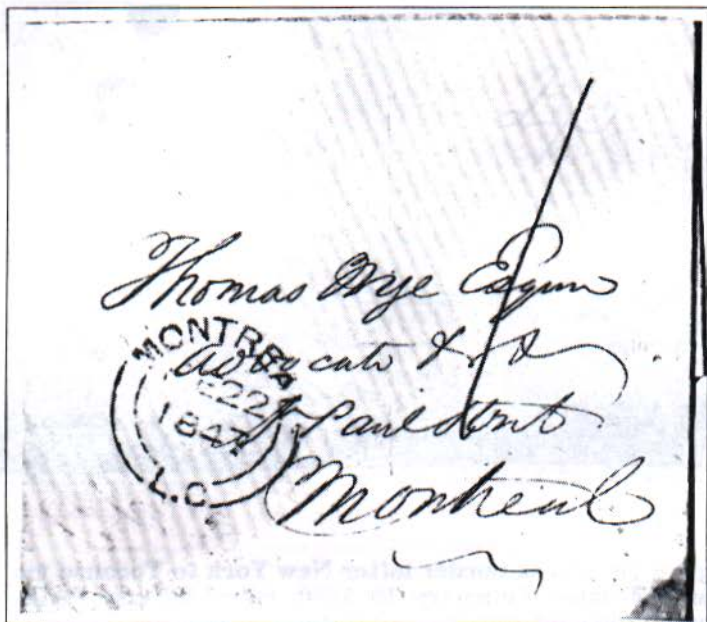 Thomas Nye Esquire
Advocate &c &c
St Paul Street
Montreal
MONTREAL
22
184
L.C.